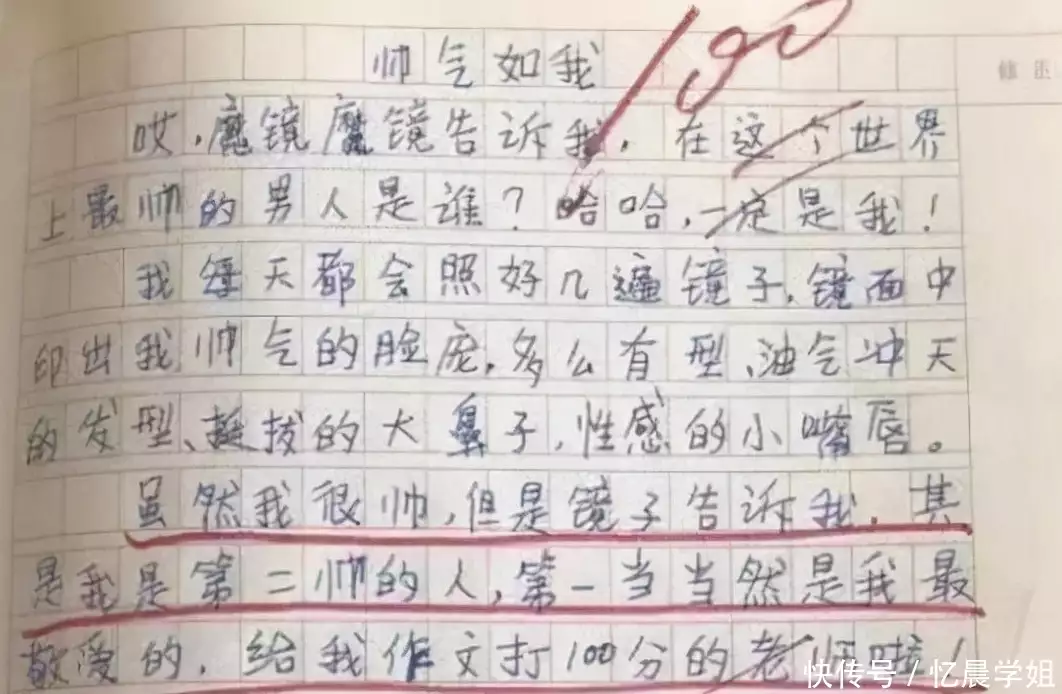 帅气如我
100
修正
哎，魔镜魔镜告诉我，在这个世界
上最帅的男人是谁？哈哈，一定是我！
我每天都会照好几遍镜子，镜面中
印出我帅气的脸庞，多么有型、油气冲天
的发型、挺拔的大鼻子，性感的小嘴唇。
虽然我很帅，但是镜子告诉我，其
是我是第二帅的人，第一当当然是我最
敬爱的，给我作文打100分的老师啦！
快传号 / 忆晨学姐